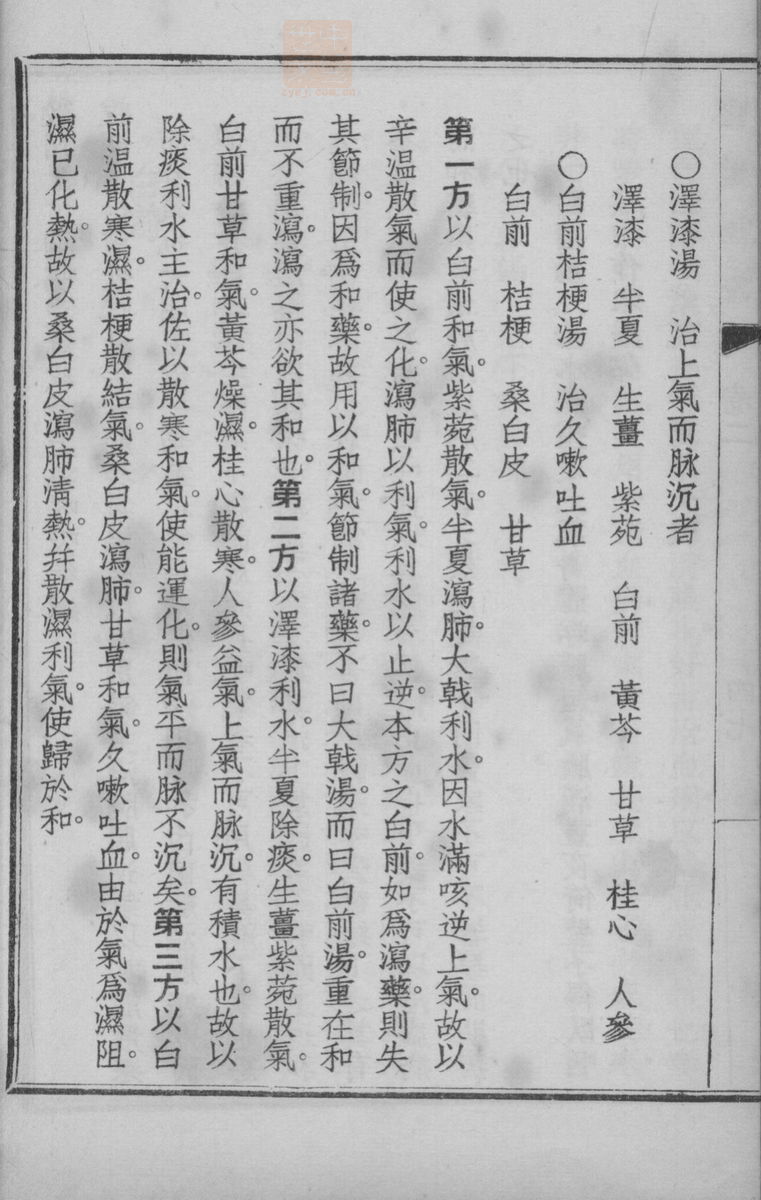 〇澤漆湯　治上氣而脉沉者
澤漆　半夏　生薑　紫菀　白前　黃芩　甘草　桂心　人參
〇白前桔梗湯　治久嗽吐血
白前　桔梗　桑白皮　甘草
第一方以白前和氣。紫菀散氣。半夏瀉肺。大戟利水。因水滿咳逆上氣。故以
辛温散氣而使之化。瀉肺以利氣。利水以止逆。本方之白前。如爲瀉藥。則失
其節制。因爲和藥。故用以和氣。節制諸藥。不曰大戟湯。而曰白前湯。重在和
而不重瀉。瀉之亦欲其和也。第二方以澤漆利水。半夏除痰。生薑紫菀散氣。
白前甘草和氣。黃芩燥濕。桂心散寒。人參益氣。上氣而脉沉。有積水也。故以
除痰利水主治。佐以散寒和氣。使能運化。則氣平而脉不沉矣。第三方以白
前温散寒濕。桔梗散結氣。桑白皮瀉肺。甘草和氣。久嗽吐血。由於氣爲濕阻。
濕已化熱。故以桑白皮瀉肺清熱。幷散濕利氣。使歸於和。
zyej.com.cn